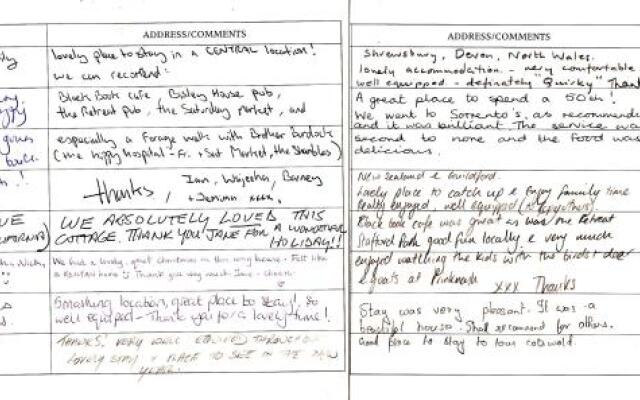 ADDRESS/COMMENTS
lovely place to stay in a CENTRAL location!
we can recommend:
Black Book cafe Bisley House pub,
the Retreat pub, the Saturday market, and
especially a Forage walk with Brother Burdock
(the hippy hospital - Fri + Sat Market, the Shambles)
thanks, Ian, Barney
+ xxxx.
WE ABSOLUTELY LOVED THIS
COTTAGE. THANK YOU JANE FOR A WONDERFUL
HOLIDAY!!
We had a lovely, great christmas in this cosy house - Felt like
a home Thank you very much Jane
Smashing location, great place to stay! so
well equiped - Thank you for a lovely time!
THANKS! VERY WELL THROUGHOUT
LOVELY STAY + PLACE TO SEE IN THE NEW
YEAR!
ADDRESS/COMMENTS
Shrewsbury, Devon, North Wales.
lonely accommodation - very comfortable
well equipped - definately "Quirky" Thank
A great place to spend a 50th!
We went to Sorrento's, as recommended
and it was brilliant. The service was
second to none and the food was
delicious.
New Zealand & Guildford.
Lovely place to catch up & enjoy family time
Really enjoyed, well equipped
Black book cafe was great as was the Retreat
Stratford Park good fun locally & very much
enjoyed watching the kids with the birds + deer
& goats at Prinknash
xxx Thanks
Stay was very pleasant. It was a
beautiful house. Shall recommend for others.
Good place to stay to tour cotswold.